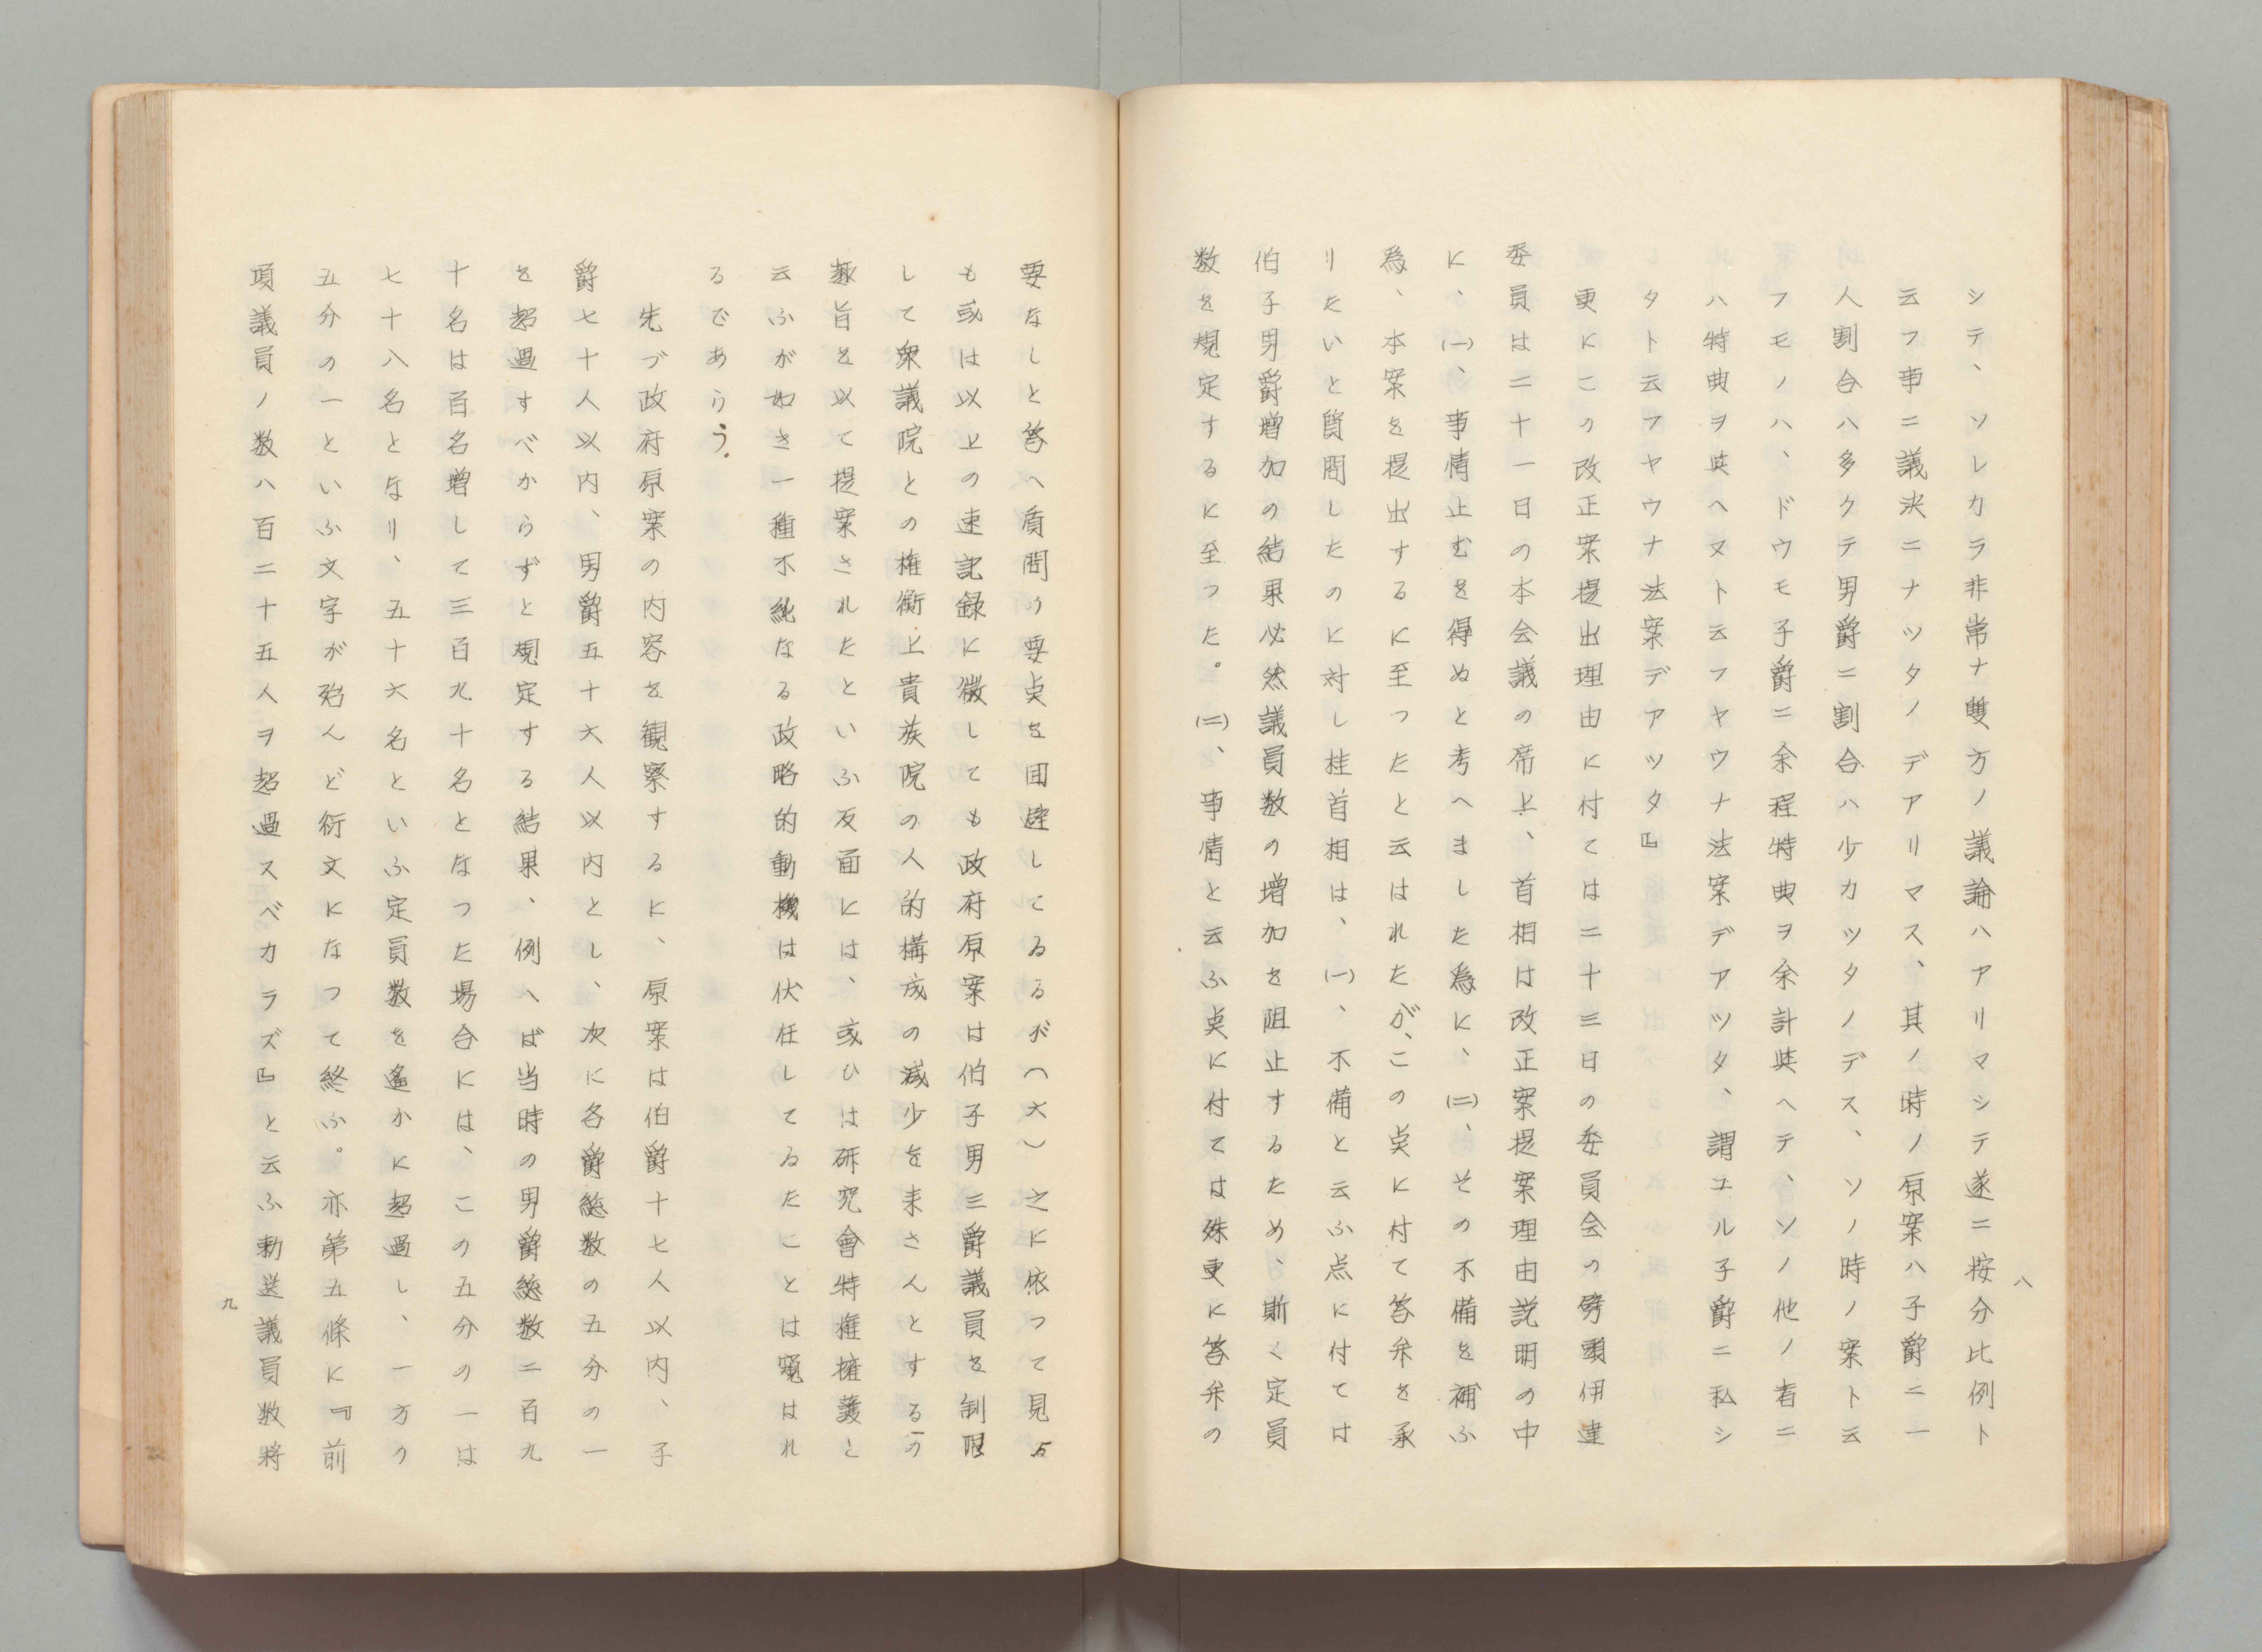 シテ、ソレカラ非常ナ雙方ノ議論ハアリマシテ遂ニ按分比例ト
云フ事ニ議決ニナツタノデアリマス、其ノ時ノ原案ハ子爵ニ一
人割合ハ多クテ男爵ニ割合ハ少カツタノデス、ソノ時ノ案ト云
フモノハ、ドウモ子爵ニ余程特典ヲ余計與ヘテ、ソノ他ノ者ニ
ハ特典ヲ與ヘヌト云フヤウナ法案デアツタ、謂ユル子爵ニ私シ
タト云フヤウナ法案デアツタ』
更にこの改正案提出理由に付ては二十三日の委員会の劈頭伊達
委員は二十一日の本会議の席上、首相は改正案提案理由説明の中
に、㈠、事情止むを得ぬと考へました為に、㈡、その不備を補ふ
為、本案を提出するに至つたと云はれたが、この点に付て答弁を承
りたいと質問したのに対し桂首相は、㈠、不備と云ふ点に付ては
伯子男爵増加の結果必然議員数の増加を阻止するため、斯く定員
数を規定するに至つた。㈡、事情と云ふ点に付ては殊更に答弁の
八
要なしと答へ質問の要点を回避してゐるが(六)之に依つて見る
も或は以上の速記録に徴しても政府原案は伯子男三爵議員を制限
して衆議院との権衡上貴族院の人的構成の減少を来さんとするの
趣旨を以て提案されたといふ反面には、或ひは研究會特権擁護と
云ふが如き一種不純なる政略的動機は伏在してゐたことは窺はれ
るであらう。
先づ政府原案の内容を観察するに、原案は伯爵十七人以内、子
爵七十人以内、男爵五十六人以内とし、次に各爵総数の五分の一
を超過すべからずと規定する結果、例へば当時の男爵総数二百九
十名は百名増して三百九十名となつた場合には、この五分の一は
七十八名となり、五十六名といふ定員数を遙かに超過し、一方の
五分の一といふ文字が殆んど衍文になつて終ふ。亦第五條に『前
項議員ノ数ハ百二十五人ヲ超過スベカラズ』と云ふ勅選議員数將
九